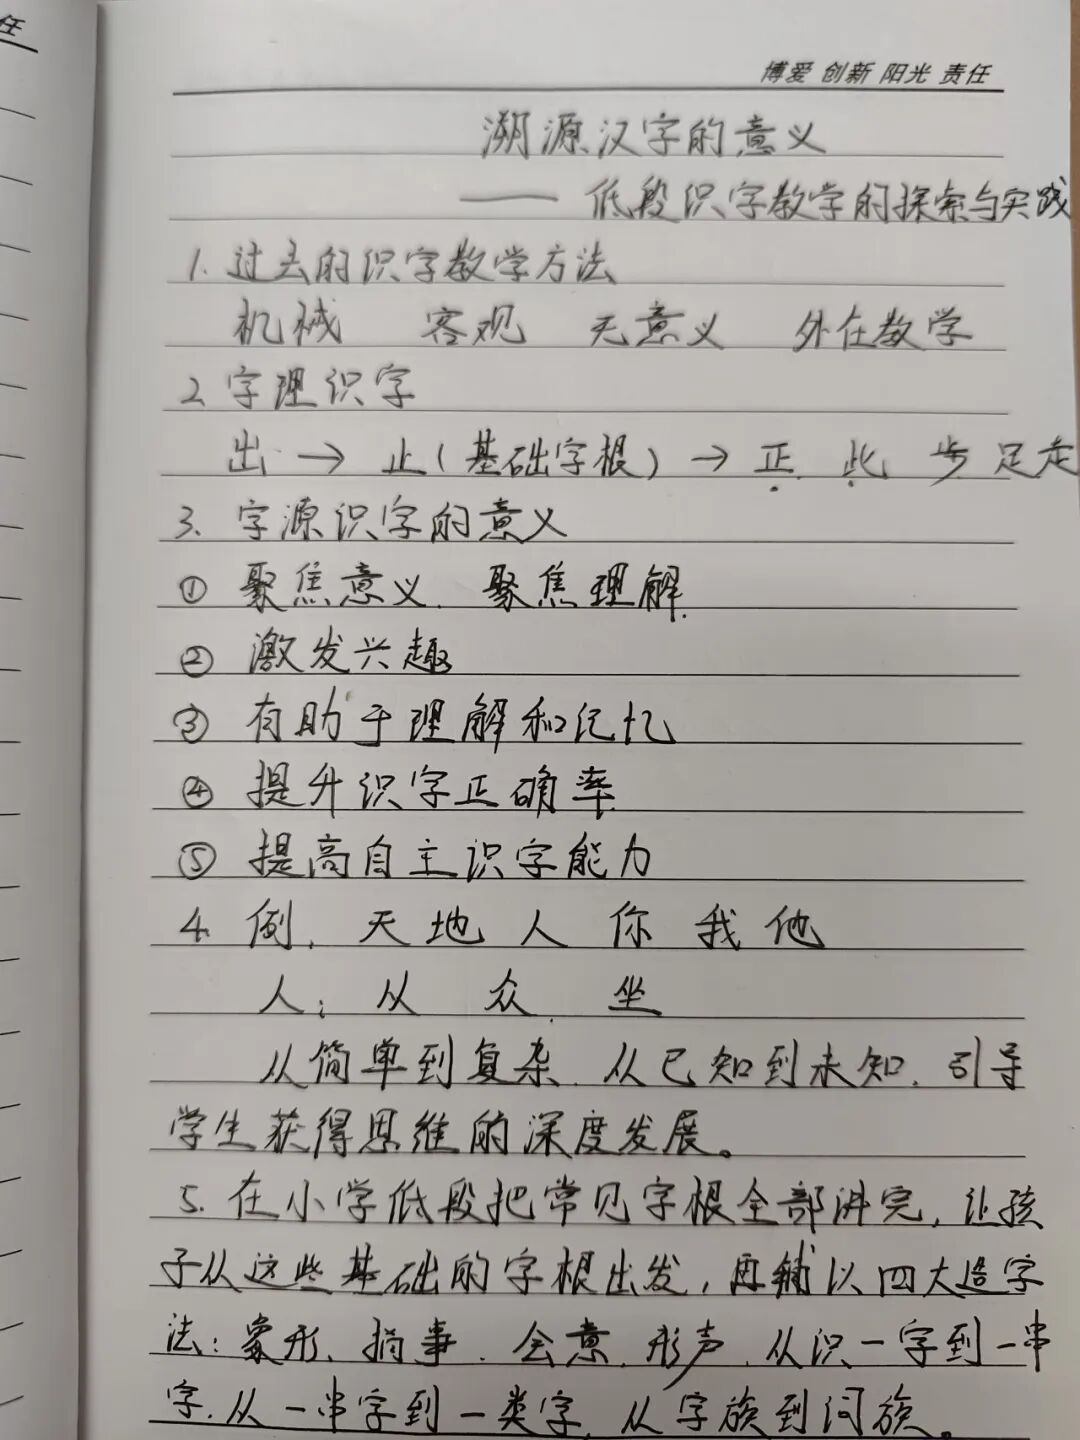 任
博爱 创新 阳光 责任
溯源汉字的意义
—— 低段识字教学的探索与实践
1. 过去的识字教学方法
机械 客观 无意义 外在教学
2. 字理识字
出 → 止(基础字根) → 正. 此 步 足 走
3. 字源识字的意义
① 聚焦意义. 聚焦理解.
② 激发兴趣
③ 有助于理解和记忆
④ 提升识字正确率.
⑤ 提高自主识字能力
4. 例. 天 地 人 你 我 他
人: 从 众 坐
从简单到复杂. 从已知到未知. 引导
学生获得思维的深度发展。
5. 在小学低段把常见字根全部讲完, 让孩
子从这些基础的字根出发, 再辅以四大造字
法: 象形、指事. 会意. 形声. 从识一字到一串
字. 从一串字到一类字. 从字族到词族。